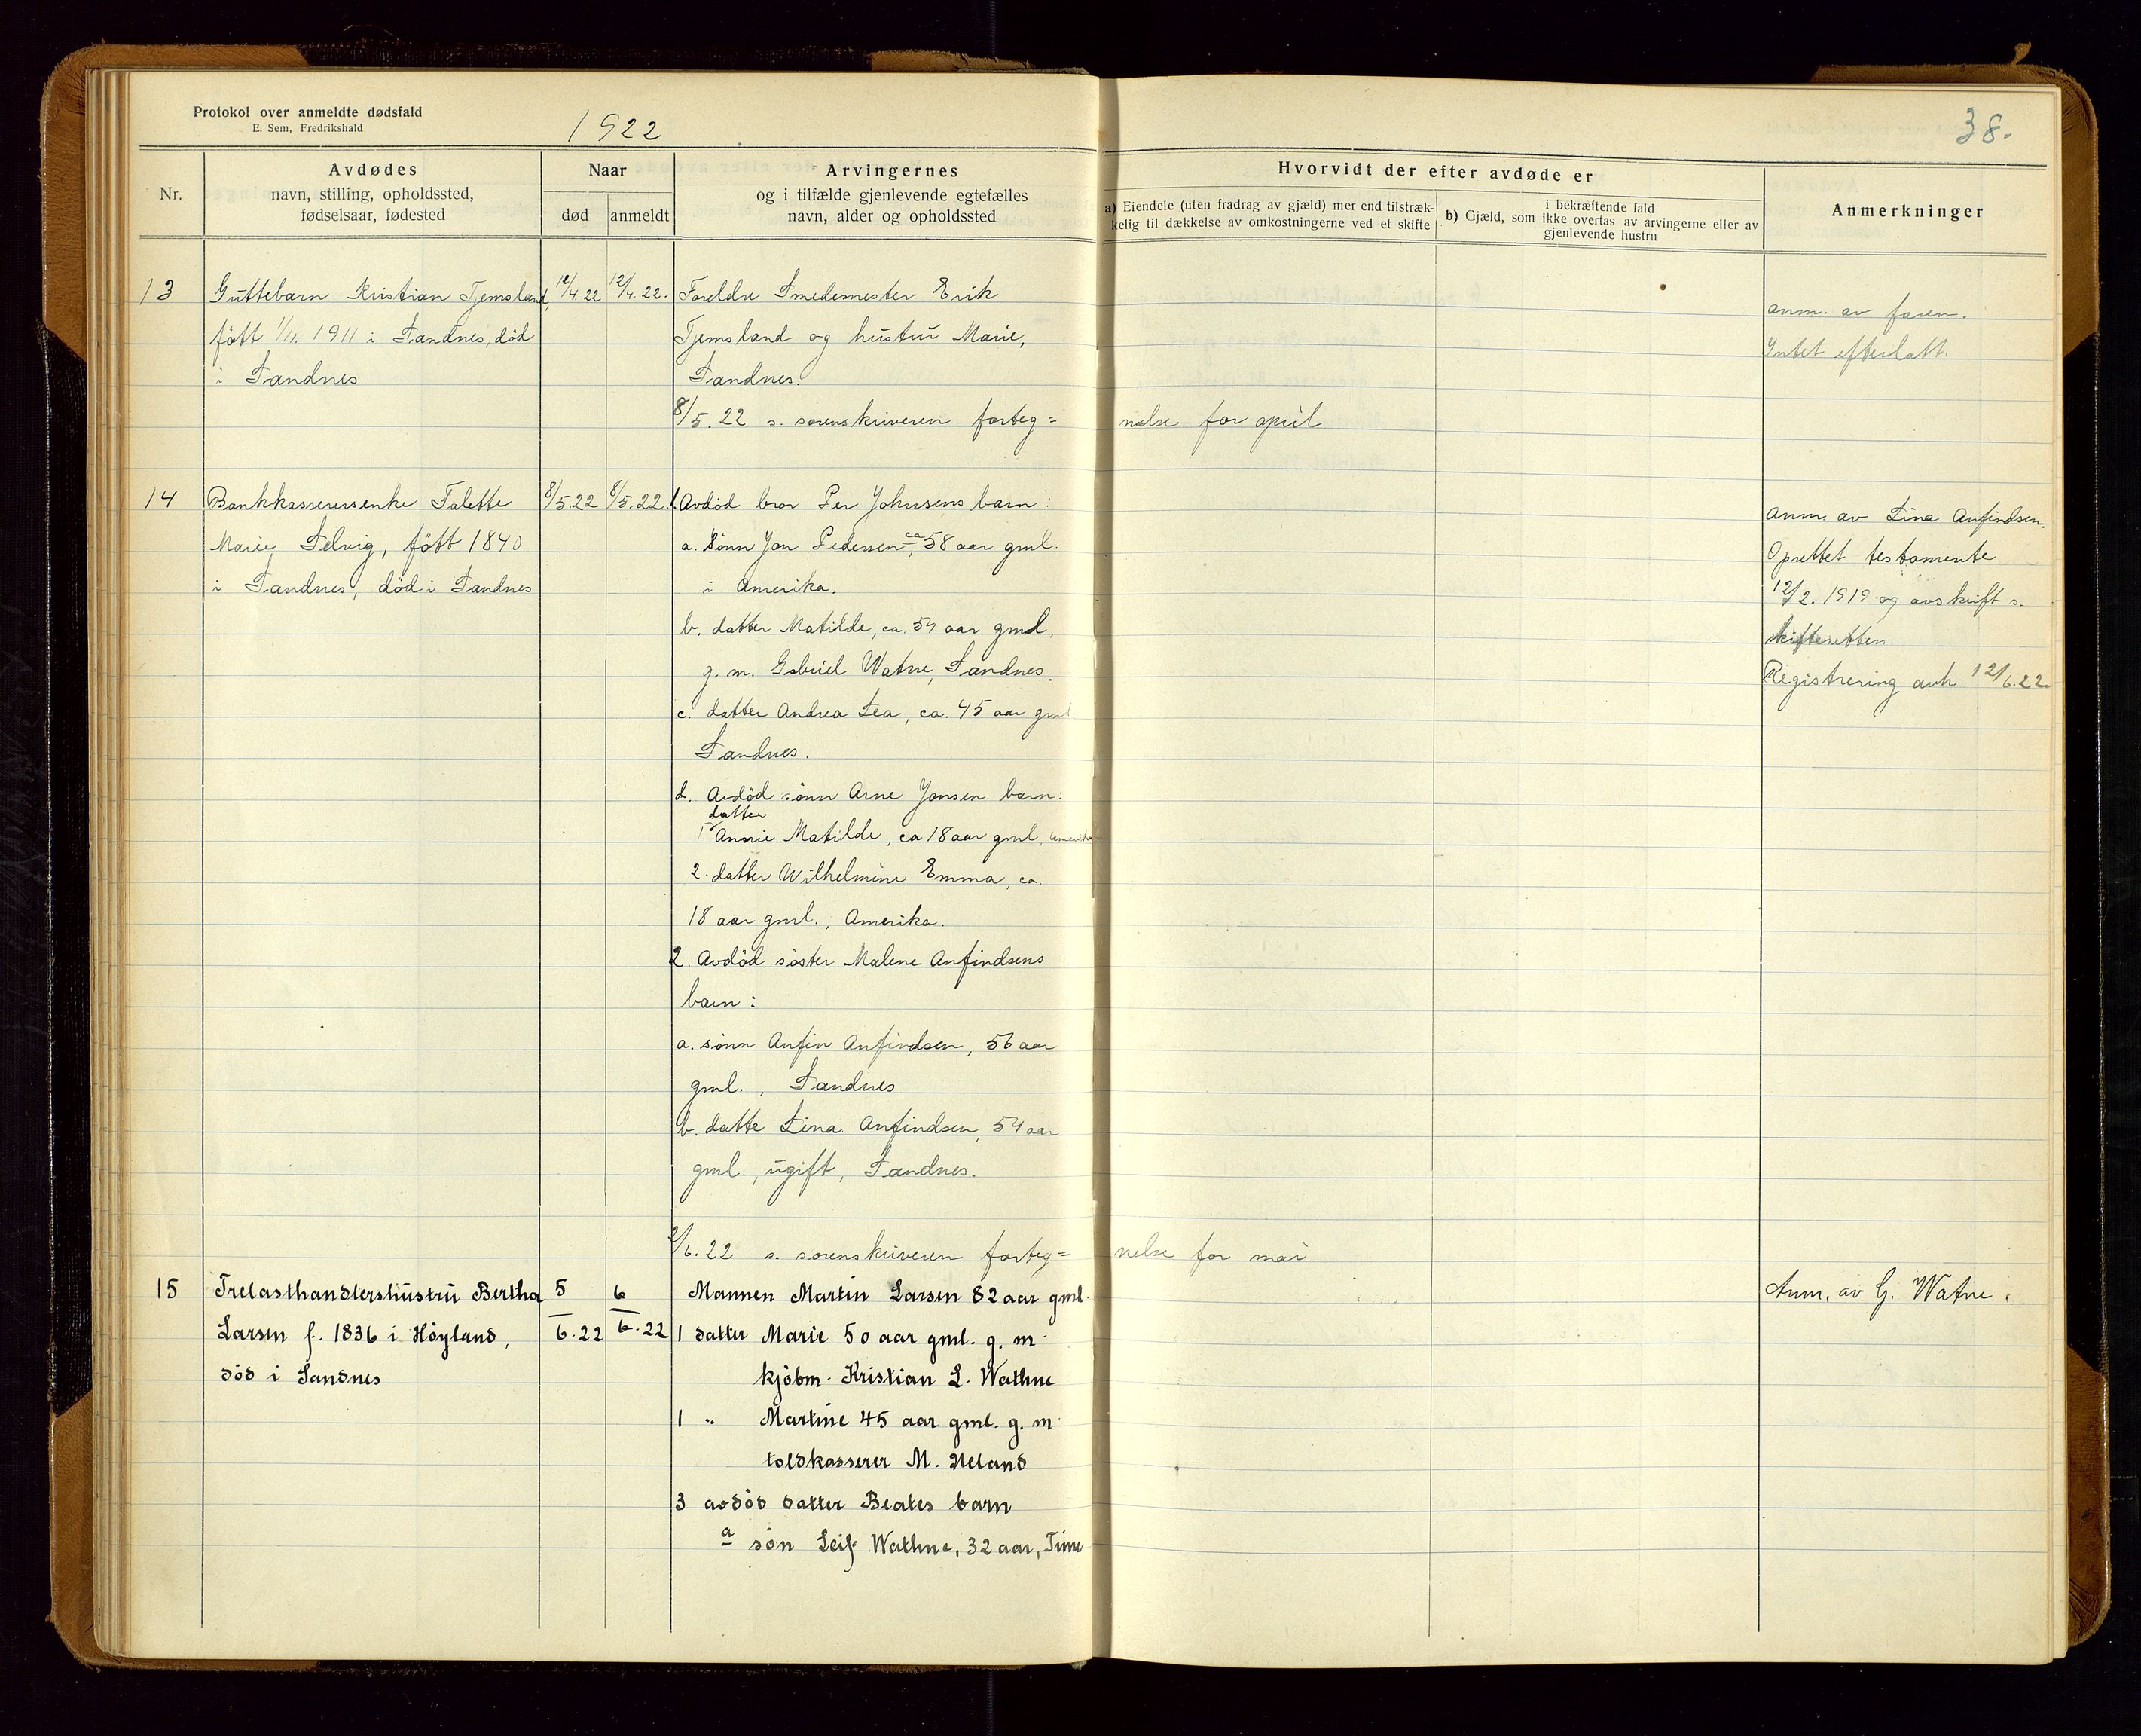 Protokol over anmeldte dødsfald
E. Sem, Fredrikshald
1922
38.
Nr.
Avdødes
navn, stilling, opholdssted,
fødselsaar, fødested
Naar
død
anmeldt
Arvingernes
og i tilfælde gjenlevende egtefælles
navn, alder og opholdssted
Hvorvidt der efter avdøde er
a) Eiendele (uten fradrag av gjæld) mer end tilstræk-
kelig til dækkelse av omkostningerne ved et skifte
i bekræftende fald
b) Gjæld, som ikke overtas av arvingerne eller av
gjenlevende hustru
Anmerkninger
13
Guttebarn Kristian Tjemsland,
født 1/11. 1911 i Sandnes, død
i Sandnes
12/4.22
12/4.22.
Foreldre Smedemester Erik
Tjemsland og hustru Marie,
Sandnes.
8/5.22 s. sorenskriveren forteg=
nelse for april
anm. av faren.
Intet efterlatt.
14
Bankkassererenke Talette
Marie Selvig, født 1840
i Sandnes, død i Sandnes
8/5.22
8/5.22.
1. Avdød bror Per Johnsens barn:
a. Sønn Jon Pedersen, ca 58 aar gml.
i Amerika.
b. datter Matilde, ca. 54 aar gml,
g. m. Gabriel Watne, Sandnes.
c. datter Andrea Lea, ca. 45 aar gml.
Sandnes.
d. Avdød sønn Arne Jonsen barn:
datter
1. Annie Matilde, ca 18 aar gml, Amerika
2. datter Wilhelmine Emma, ca.
18 aar gml., Amerika.
2. Avdød søster Malene Anfindsens
barn:
a. sønn Anfin Anfindsen, 56 aar
gml., Sandnes
b. datte Lina Anfindsen, 54 aar
gml., ugift, Sandnes.
/6.22 s. sorenskriveren forteg=
nelse for mai
anm. av Lina Anfindsen.
Oprettet testamente
12/2. 1919 og avskrift s.
skifteretten
Registrering avh. 12/6.22.
15
Trelasthandlershustru Bertha
Larsen f. 1836 i Høyland,
død i Sandnes
5/6.22
6/6.22
Mannen Martin Larsen 82 aar gml.
1 datter Marie 50 aar gml. g. m.
kjøbm. Kristian L. Wathne
1 " Martine 45 aar gml. g. m.
toldkasserer M. Ueland
3 avdød datter Beates barn
a søn Leif Wathne, 32 aar, Time
Anm. av G. Watne.